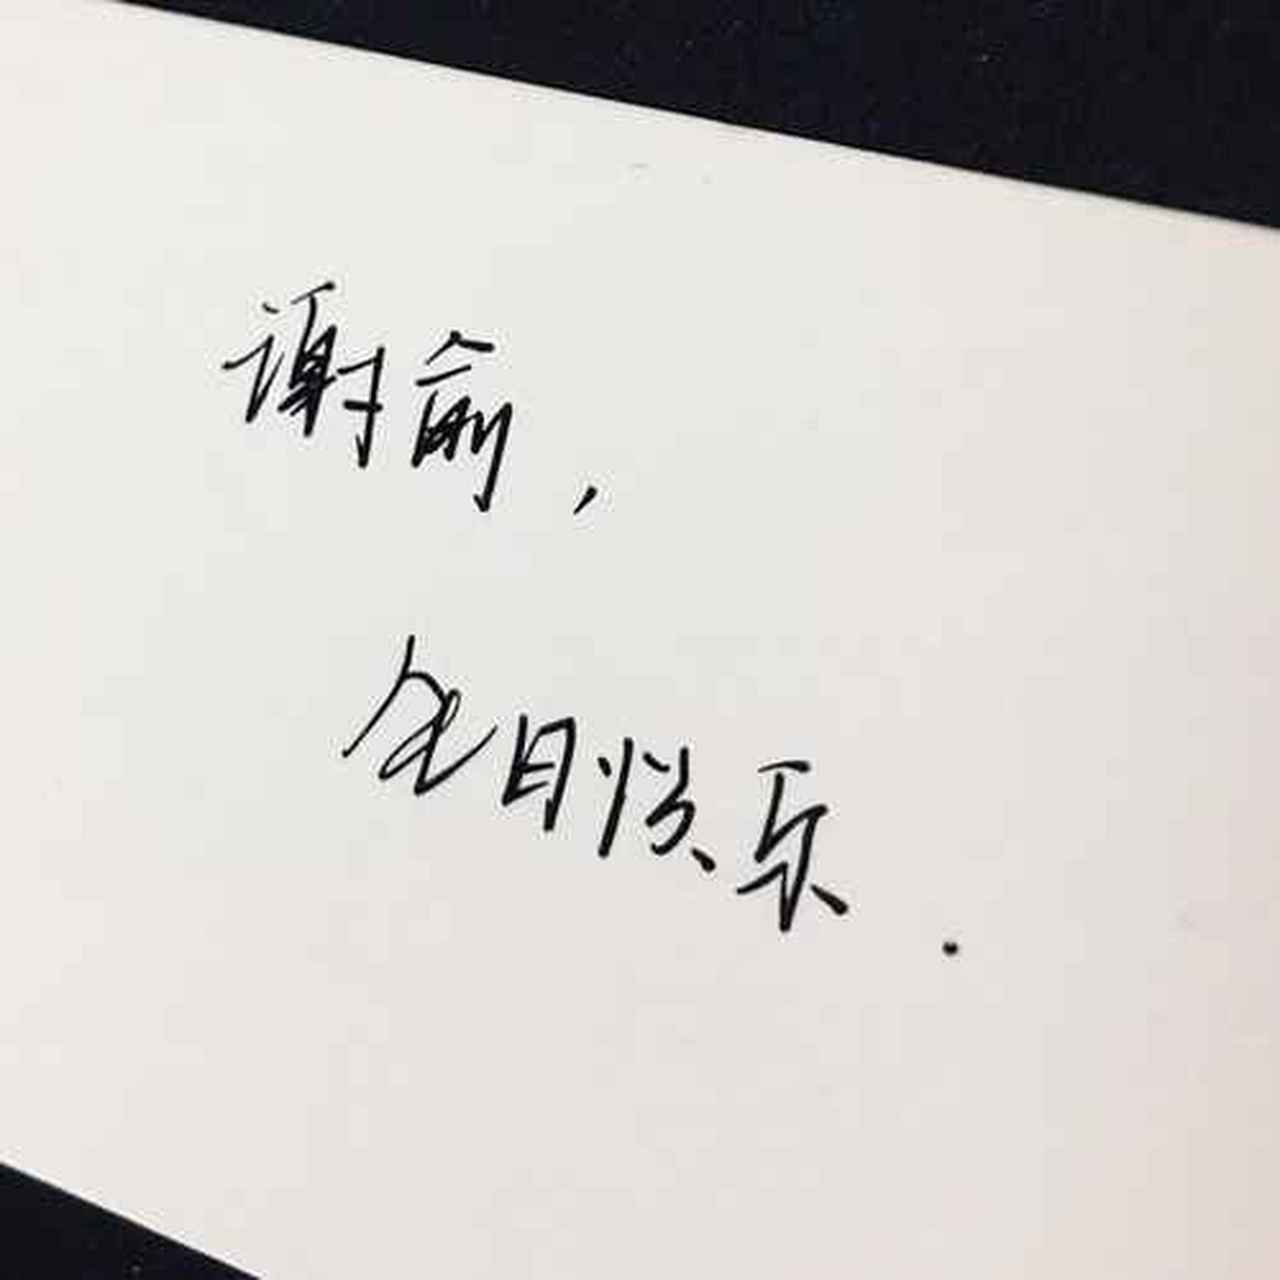 谢俞，
生日快乐.